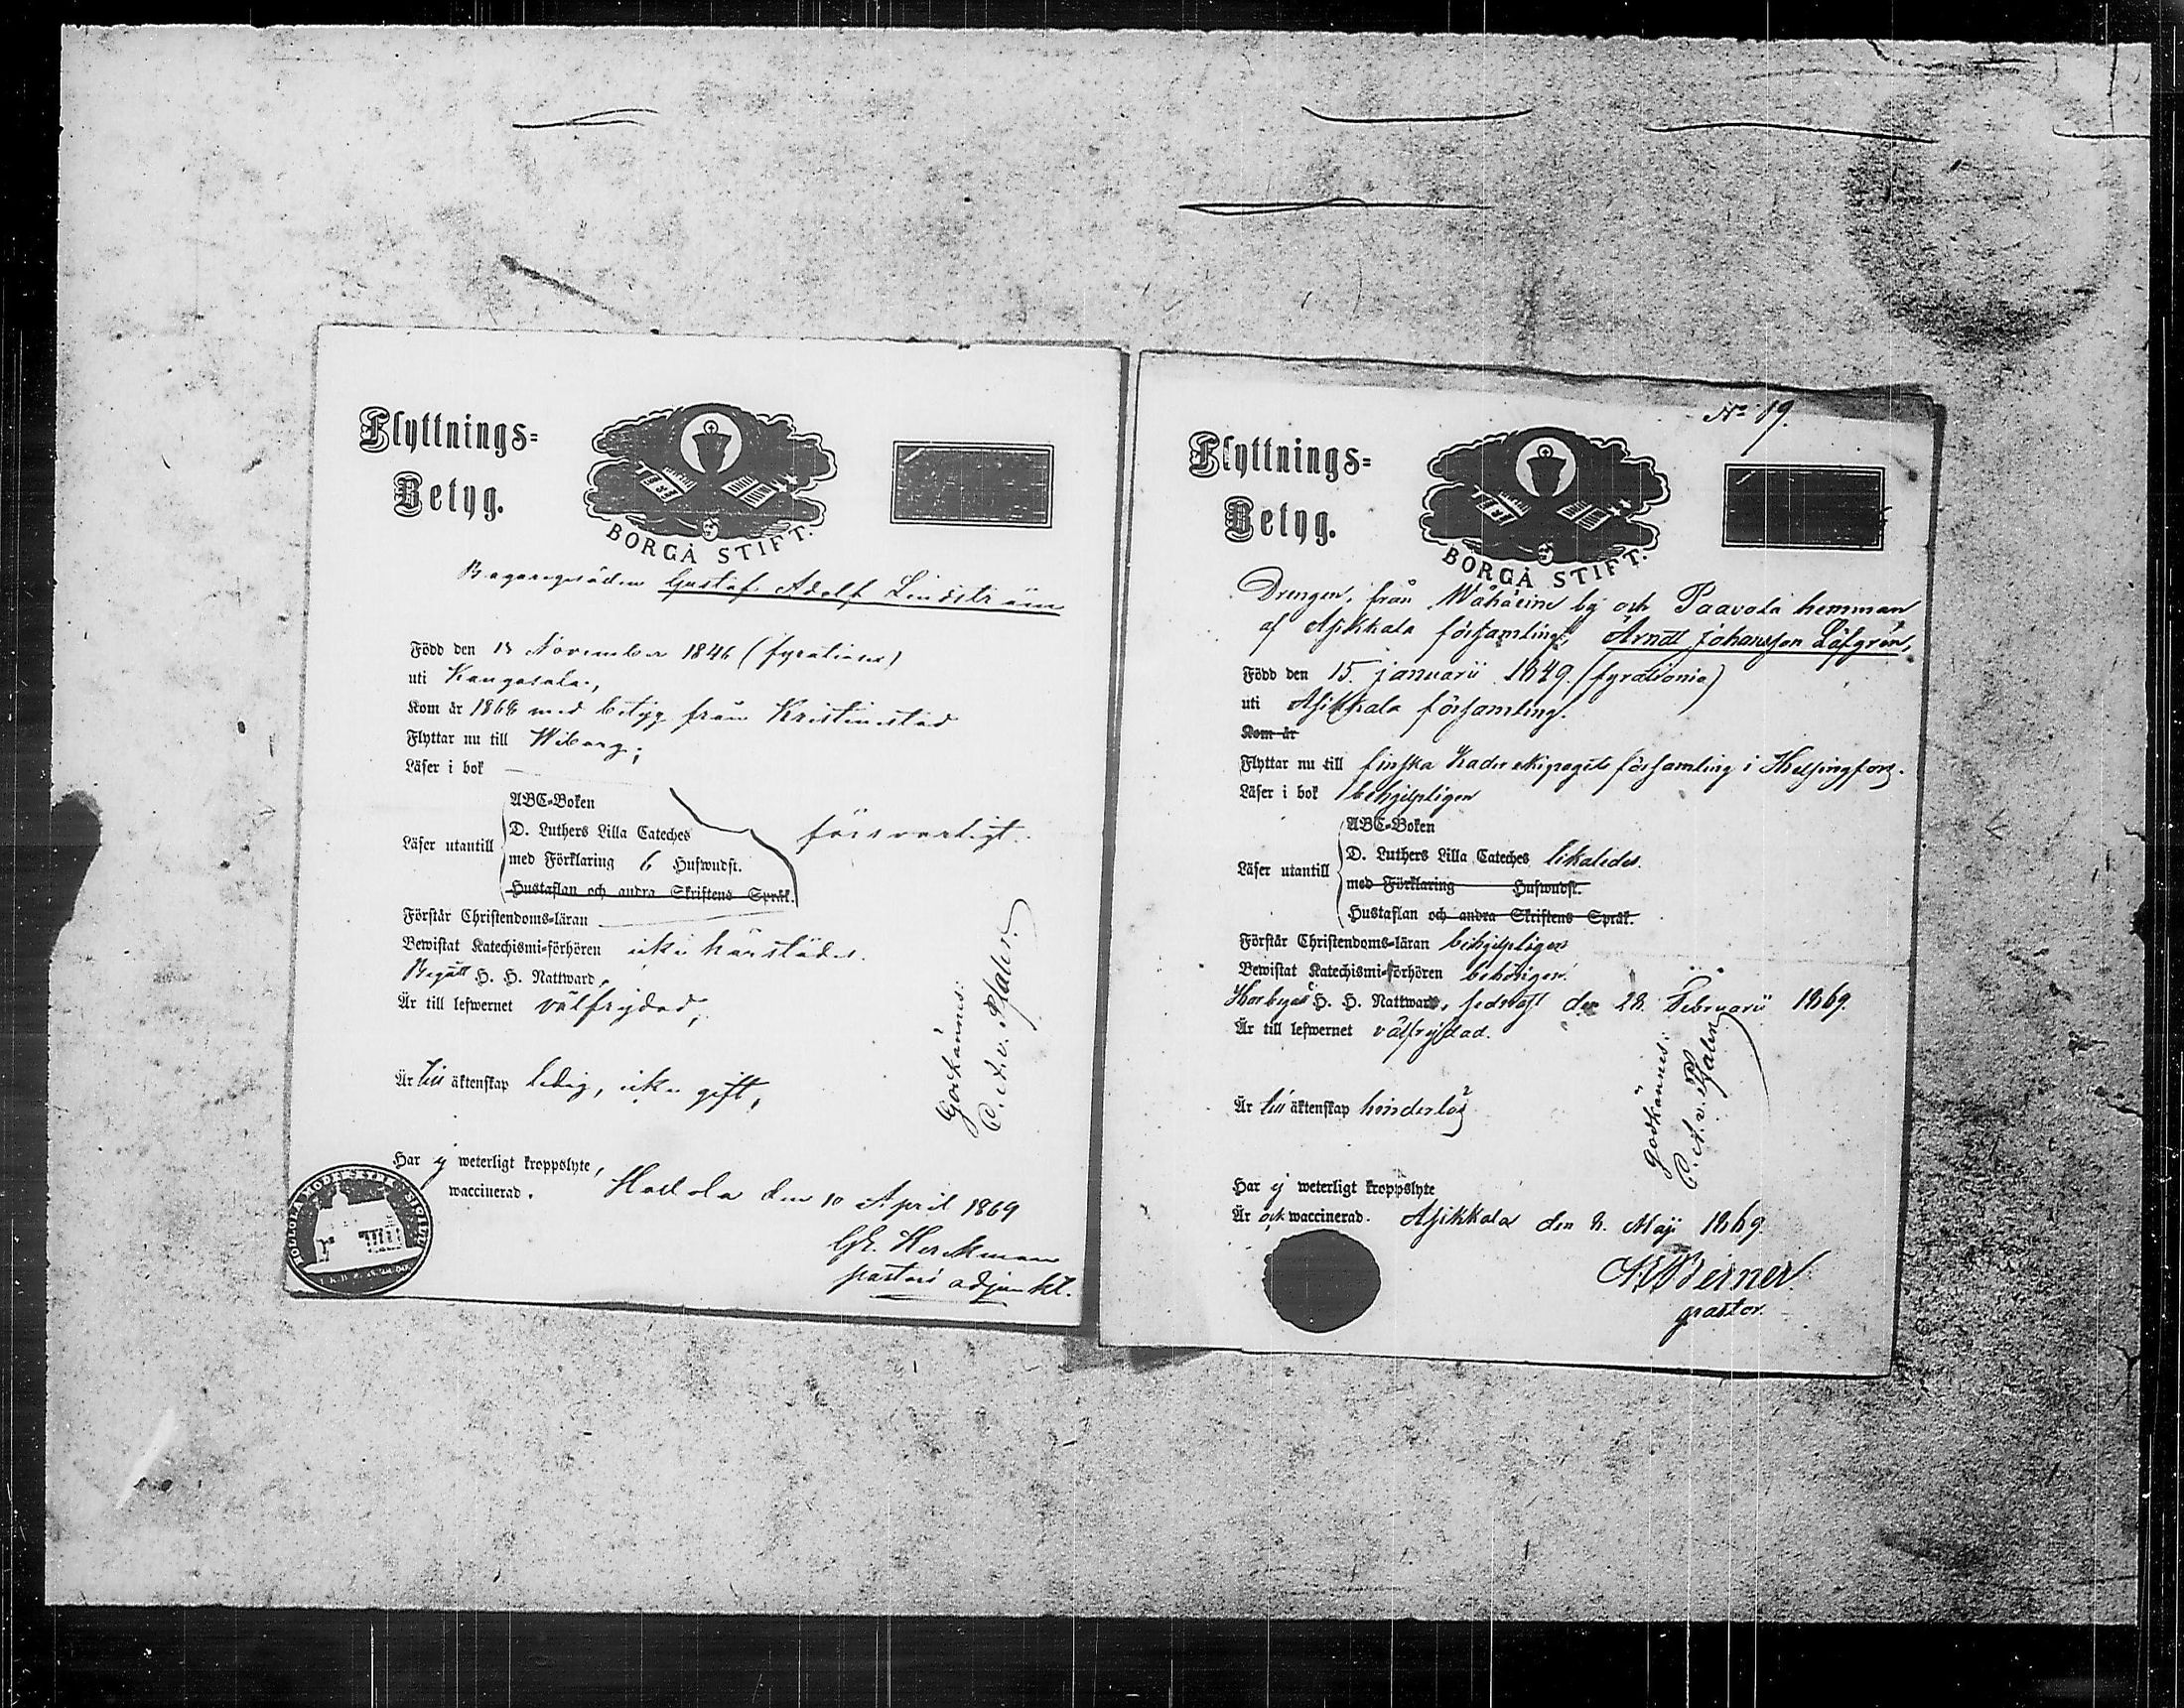 Flyttnings=
Betyg.
BORGÅ STIFT.
Bagaregesällen Gustaf Adolf Lindström
Född den 13 November 1846 (fyratiosex)
uti Kangasala,
Kom år 1868 med betyg från Kristinestad
Flyttar nu till Wiborg;
Läser i bok
Läser utantill
ABC-Boken
D. Luthers Lilla Cateches
med Förklaring 6 Hufwudst.
försvarligt.
Hustaflan och andra Skriftens Språk.
Förstår Christendoms-läran
Bewistat Katechismi-förhören icke härstädes.
Begått H. H. Nattward,
Är till lefwernet välfrejdad;
Är till äktenskap ledig, icke gift,
Har ej weterligt kroppslyte,
waccinerad.
Hollola den 10 April 1869
Herckman
pastors adjunkt.
Godkännes:
C. A. v. Pfaler.
HOLLOLA MODERKYRK. SIGILL
No 19.
Flyttnings=
Betyg.
BORGÅ STIFT.
Drengen, från Wähäeine by och Paavola hemman
af Asikkala församling, Arndt Johansson Löfgren,
Född den 15 januarii 1849. (fyrationio)
uti Asikkala församling.
Kom år
Flyttar nu till finska Kader ekipagets församling i Helsingfors.
Läser i bok behjelpligen
Läser utantill
ABC-Boken
D. Luthers Lilla Cateches likaledes.
med Förklaring Hufwudst.
Hustaflan och andra Skriftens Språk.
Förstår Christendoms-läran behjelpligen
Bewistat Katechismi-förhören behörigen.
Har begått H. H. Nattward, sednast den 28 Februarii 1869.
Är till lefwernet välfrejdad.
Är till äktenskap hinderlös
Har ej weterligt kroppslyte
Är ock waccinerad. Asikkala den 8. Maji 1869.
pastor.
godkännes:
C. A. v. Pfaler